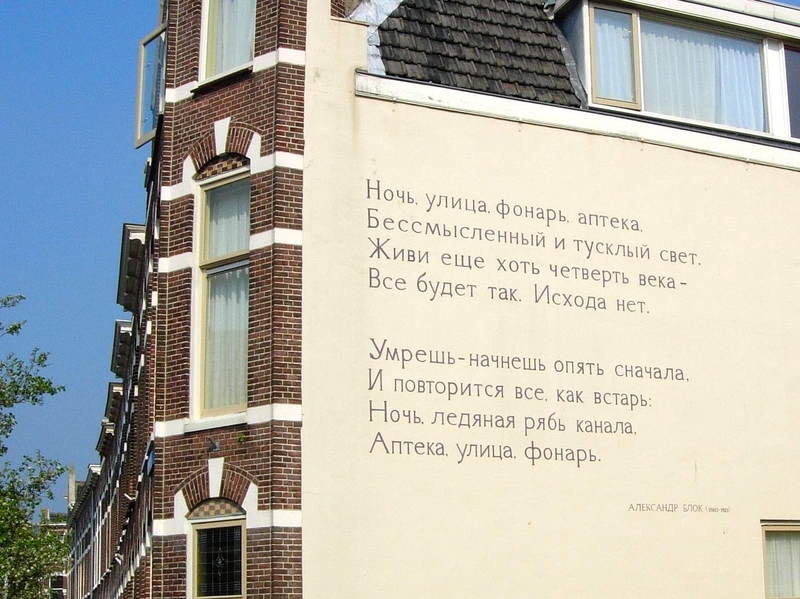 Ночь, улица, фонарь, аптека,
Бессмысленный и тусклый свет.
Живи еще хоть четверть века-
Все будет так. Исхода нет.
Умрешь-начнешь опять сначала,
И повторится все, как встарь:
Ночь, ледяная рябь канала,
Аптека, улица, фонарь.
АЛЕКСАНДР БЛОК (1880-1921)